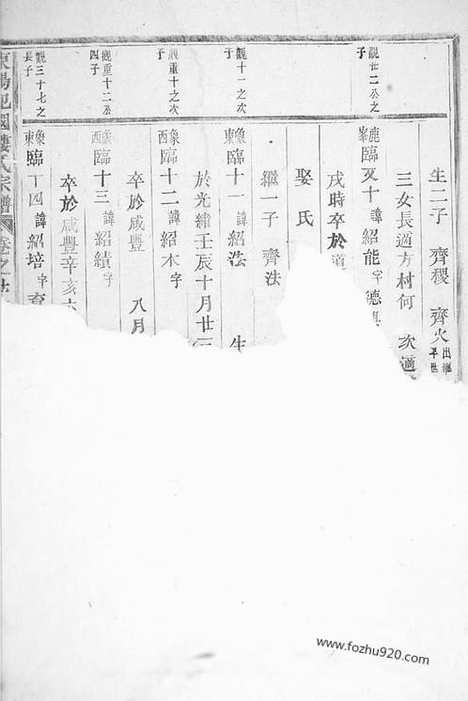 生二子 齊稷 齊火出繼
三女長適方村何 次適
觀廿二公之子
鹿峯 臨又十 諱紹能字德
戌時卒於道
娶氏
繼一子 齊法
觀十一之次子
象東 臨十一 諱紹法 生
於光緒壬辰十月廿三
觀重十之次子
象西 臨十二 諱紹本字
卒於咸豐 八月
觀重十二公四子
象西 臨十三 諱紹績字
卒於咸豐辛亥六
觀三十七之長子
象東 臨丁四 諱紹培字育
東陽 國 氏宗譜
www.fozhu920.com